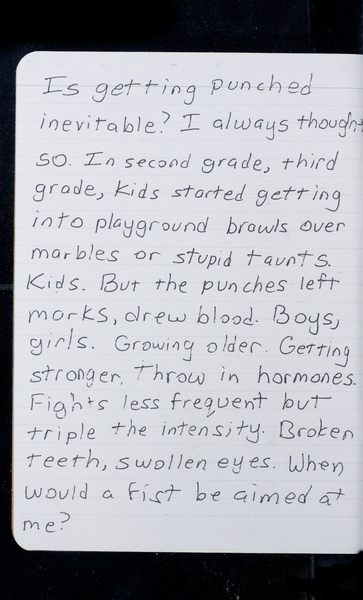 Is getting punched
inevitable? I always thought
so. In second grade, third
grade, kids started getting
into playground brawls over
marbles or stupid taunts.
Kids. But the punches left
marks, drew blood. Boys,
girls. Growing older. Getting
stronger. Throw in hormones.
Fights less frequent but
triple the intensity. Broken
teeth, swollen eyes. When
would a fist be aimed at
me?